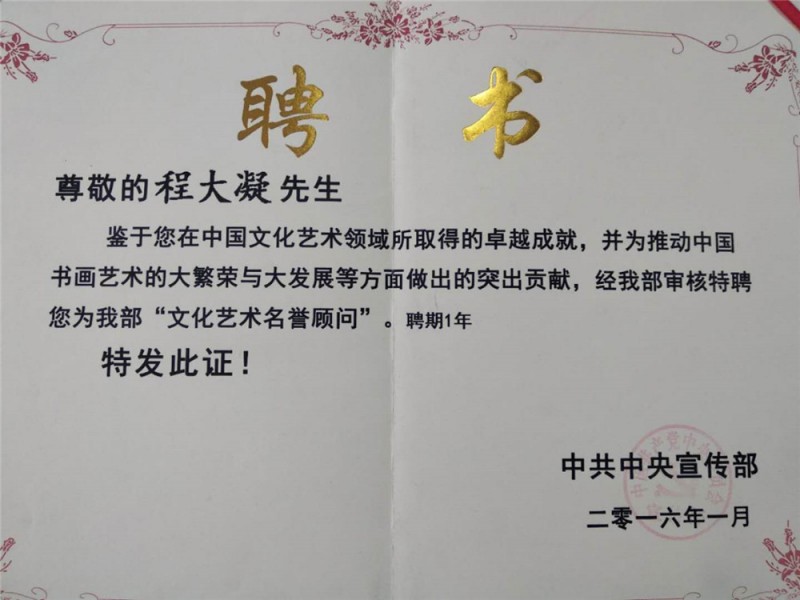 聘书
尊敬的程大凝先生
鉴于您在中国文化艺术领域所取得的卓越成就，并为推动中国
书画艺术的大繁荣与大发展等方面做出的突出贡献，经我部审核特聘
您为我部“文化艺术名誉顾问”。聘期1年
特发此证！
中共中央宣传部
二零一六年一月